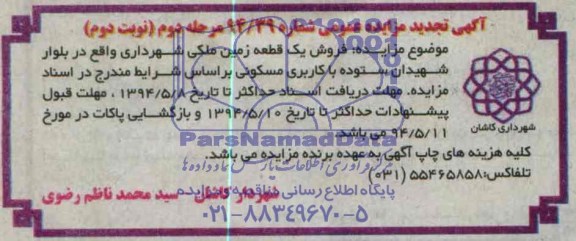 آگهی تجدید مزایده عمومی شماره ۹۴/۳۹ مرحله دوم (نوبت دوم)
موضوع مزایده: فروش یک قطعه زمین ملکی شهرداری واقع در بلوار
شهیدان ستوده با کاربری مسکونی براساس شرایط مندرج در اسناد
مزایده. مهلت دریافت اسناد حداکثر تا تاریخ ۱۳۹۴/۵/۸ ، مهلت قبول
پیشنهادات حداکثر تا تاریخ ۱۳۹۴/۵/۱۰ و بازگشایی پاکات در مورخ
۹۴/۵/۱۱ می باشد.
شهرداری کاشان
ParsNamadData
کلیه هزینه های چاپ آگهی به عهده برنده مزایده می باشد.
تلفاکس: ۵۵۴۶۵۸۵۸ (۰۳۱)
پایگاه اطلاع رسانی مناقصه و مزایده
شهردار کاشان - سید محمد ناظم رضوی
۰۲۱-۸۸۳۴۹۶۷۰-۵